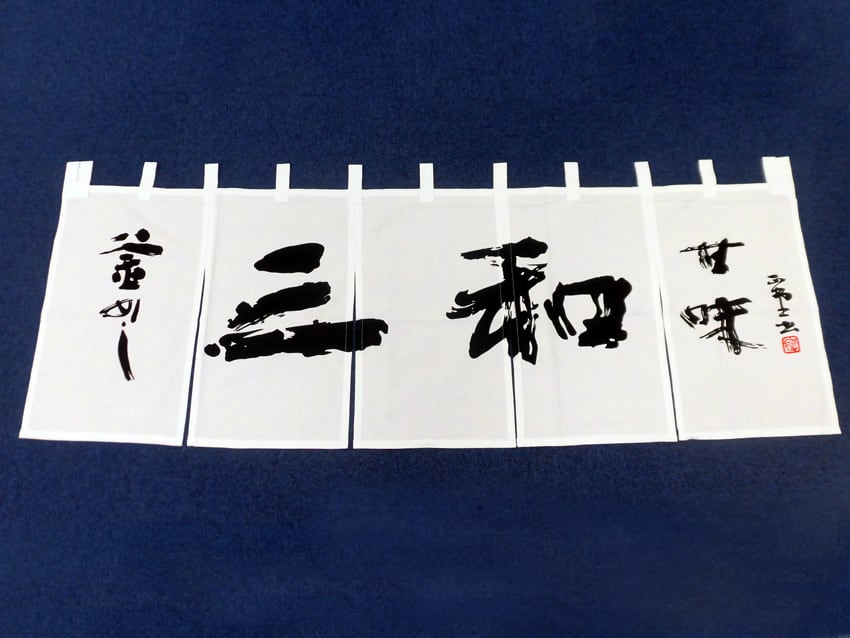 甘味
三和
釜めし